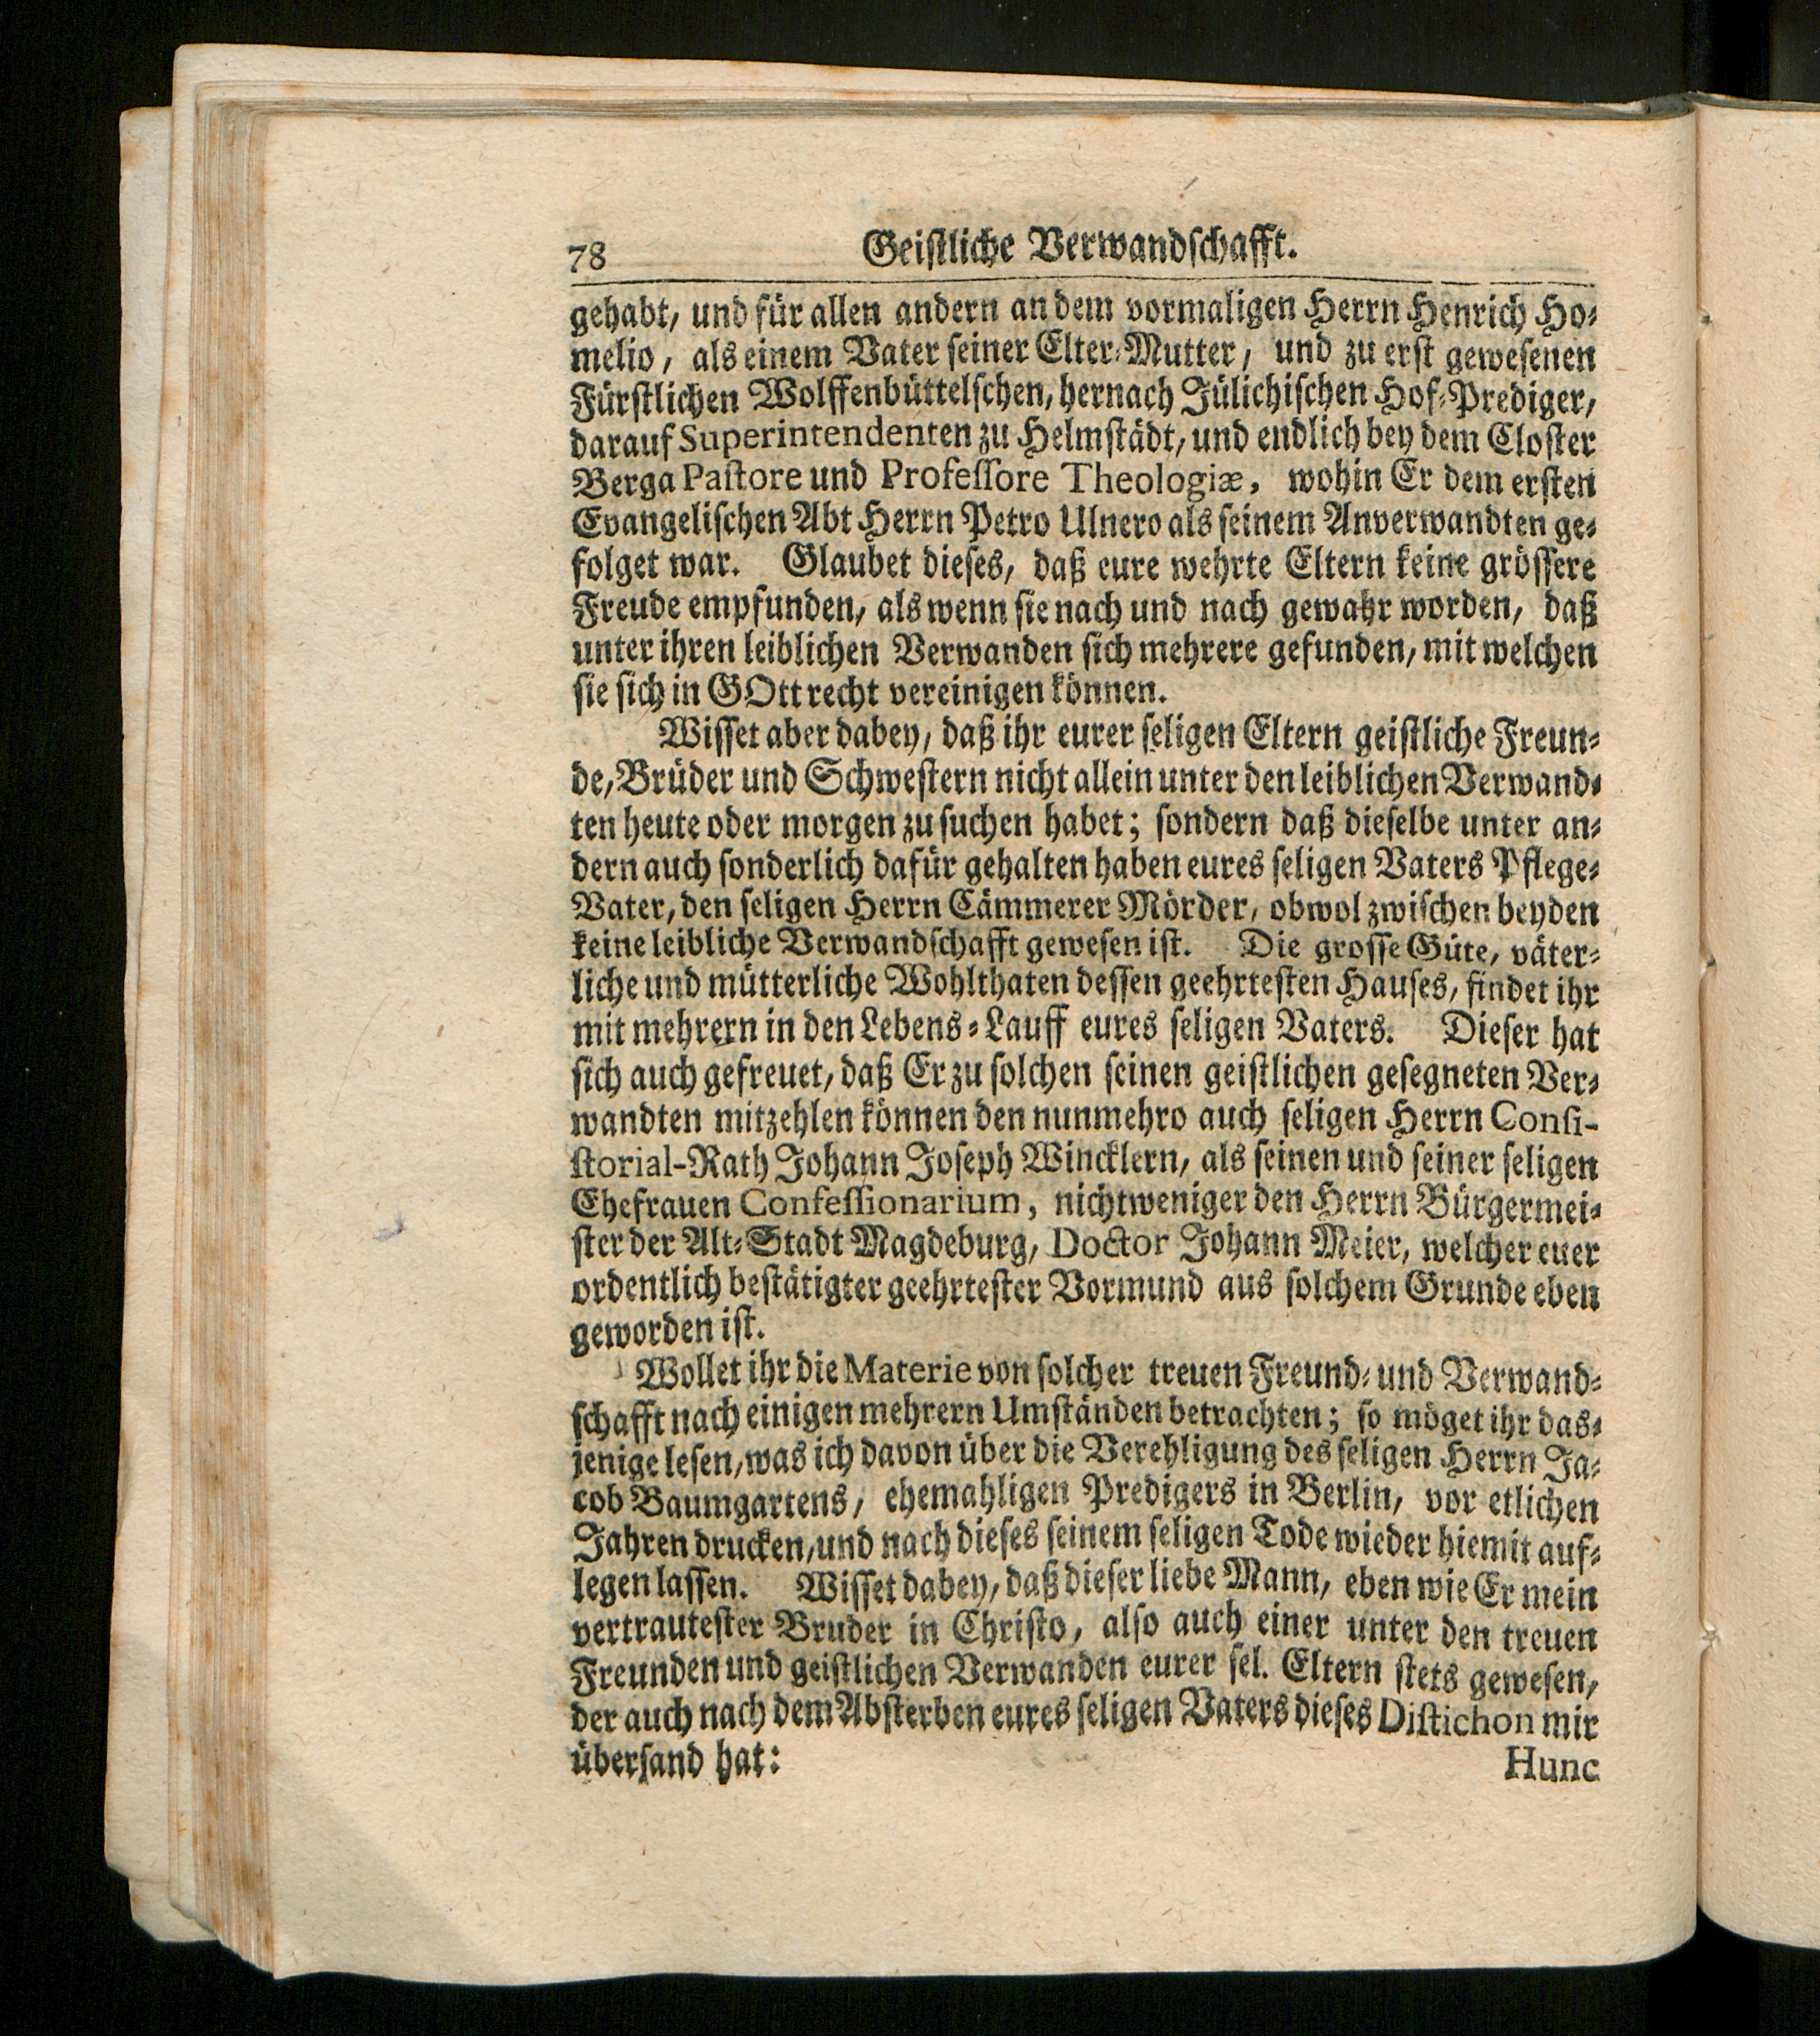 78 Geistliche Verwandschafft.
gehabt, und für allen andern an dem vormaligen Herrn Henrich Ho-
melio, als einem Vater seiner Elter-Mutter, und zu erst gewesenen
Fürstlichen Wolffenbüttelschen, hernach Jülichischen Hof-Prediger,
darauf Superintendenten zu Helmstädt, und endlich bey dem Closter
Berga Pastore und Professore Theologiæ, wohin Er dem ersten
Evangelischen Abt Herrn Petro Ulnero als seinem Anverwandten ge-
folget war. Glaubet dieses, daß eure wehrte Eltern keine grössere
Freude empfunden, als wenn sie nach und nach gewahr worden, daß
unter ihren leiblichen Verwanden sich mehrere gefunden, mit welchen
sie sich in GOtt recht vereinigen können.
Wisset aber dabey, daß ihr eurer seligen Eltern geistliche Freun-
de, Brüder und Schwestern nicht allein unter den leiblichen Verwand-
ten heute oder morgen zu suchen habet; sondern daß dieselbe unter an-
dern auch sonderlich dafür gehalten haben eures seligen Vaters Pflege-
Vater, den seligen Herrn Cämmerer Mörder, obwol zwischen beyden
keine leibliche Verwandschafft gewesen ist. Die grosse Güte, väter-
liche und mütterliche Wohlthaten dessen geehrtesten Hauses, findet ihr
mit mehrern in den Lebens-Lauff eures seligen Vaters. Dieser hat
sich auch gefreuet, daß Er zu solchen seinen geistlichen gesegneten Ver-
wandten mitzehlen können den nunmehro auch seligen Herrn Consi-
storial-Rath Johann Joseph Wincklern, als seinen und seiner seligen
Ehefrauen Confessionarium, nicht weniger den Herrn Bürgermei-
ster der Alt-Stadt Magdeburg, Doctor Johann Meier, welcher euer
ordentlich bestätigter geehrtester Vormund aus solchem Grunde eben
geworden ist.
Wollet ihr die Materie von solcher treuen Freund- und Verwand-
schafft nach einigen mehrern Umständen betrachten; so möget ihr das-
jenige lesen, was ich davon über die Verehligung des seligen Herrn Ja-
cob Baumgartens, ehemahligen Predigers in Berlin, vor etlichen
Jahren drucken, und nach dieses seinem seligen Tode wieder hiemit auf-
legen lassen. Wisset dabey, daß dieser liebe Mann, eben wie Er mein
vertrautester Bruder in Christo, also auch einer unter den treuen
Freunden und geistlichen Verwanden eurer sel. Eltern stets gewesen,
der auch nach dem Absterben eures seligen Vaters dieses Distichon mir
übersand hat: Hunc